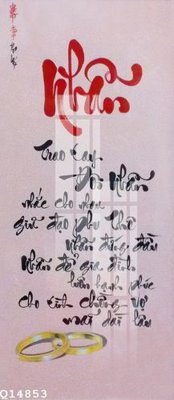 Nhẫn
Trao tay
Đôi Nhẫn
nhắc cho nhau
giữ đạo phu thê
Nhẫn đứng đầu
Nhẫn để gia đình
luôn hạnh phúc
cho tình chồng vợ
mãi dài lâu
Q14853